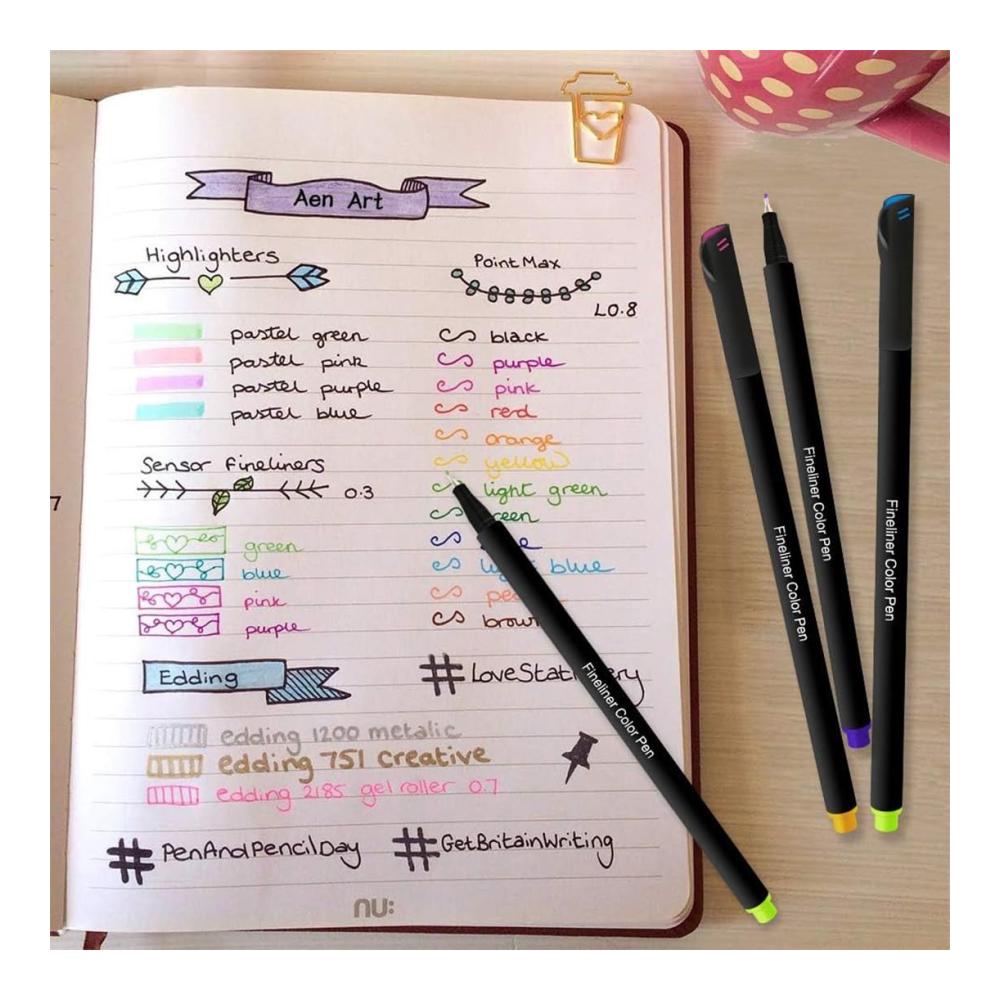 Aen Art
Highlighters
pastel green
pastel pink
pastel purple
pastel blue
Sensor Fineliners
0.3
green
blue
pink
purple
Edding
edding 1200 metalic
edding 751 creative
edding 2185 gel roller 0.7
Point Max
L0.8
black
purple
pink
red
orange
yellow
light green
light blue
brown
#PenAndPencilDay
#GetBritainWriting
nu:
7
Fineliner Color Pen
Fineliner Color Pen
Fineliner Color Pen
Fineliner Color Pen